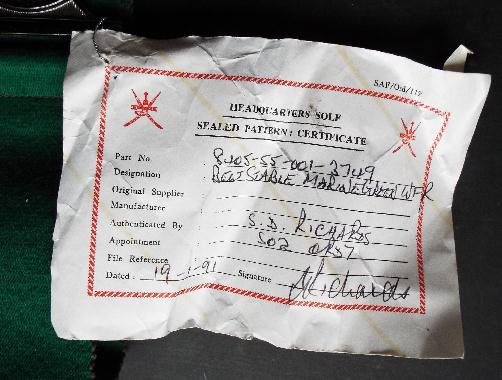 SAF/Ord/119
HEADQUARTERS SOLF
SEALED PATTERN: CERTIFICATE
Part No. 8405-55-001-2749
Designation BELT STABLE MARINE GREEN W-R
Original Supplier
Manufacturer
Authenticated By S.D. RICHARDS
Appointment SO2 ORD7
File Reference
Dated: 19-1-91 Signature SRichards